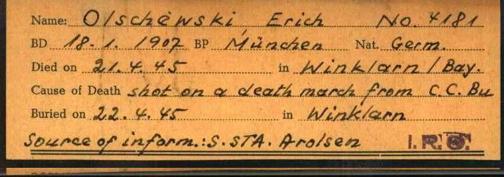 Name: Olschewski Erich No. 4181
BD 18.1.1907 BP München Nat. Germ.
Died on 21.4.45 in Winklarn/Bay.
Cause of Death shot on a death march from C.C. Bu
Buried on 22.4.45 in Winklarn
Source of inform.: S. STA. Arolsen I.R.O.